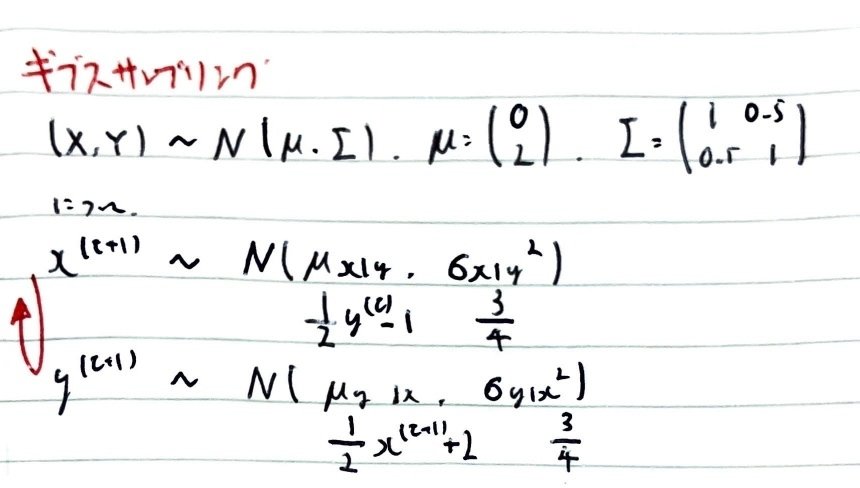 ギブスサンプリング
(X,Y) ~ N(μ, Σ). μ = (0 2). Σ = (1 0.5 0.5 1)
について.
x^(t+1) ~ N(μx|y, σx|y²)
1/2 y^(t) - 1 3/4
y^(t+1) ~ N(μy|x, σy|x²)
1/2 x^(t+1) + 2 3/4